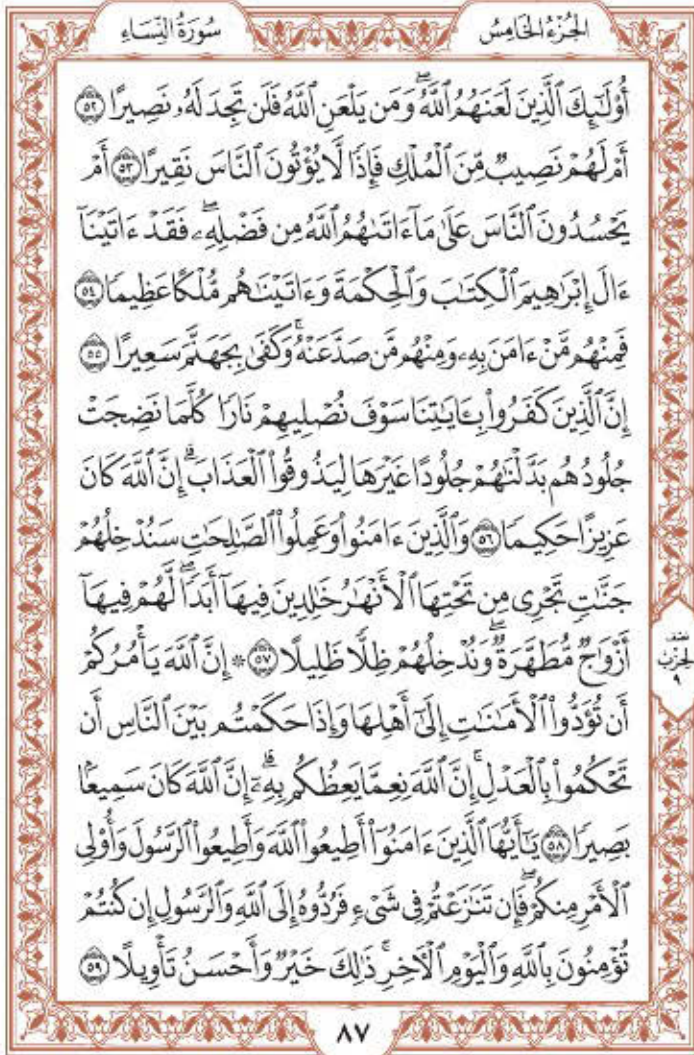 سُورَةُ النِّسَاءِ
الجُزْءُ الخَامِسُ
أُوْلَٰٓئِكَ ٱلَّذِينَ لَعَنَهُمُ ٱللَّهُۖ وَمَن يَلْعَنِ ٱللَّهُ فَلَن تَجِدَ لَهُۥ نَصِيرًا ٥٢
أَمْ لَهُمْ نَصِيبٌ مِّنَ ٱلْمُلْكِ فَإِذًا لَّا يُؤْتُونَ ٱلنَّاسَ نَقِيرًا ٥٣ أَمْ
يَحْسُدُونَ ٱلنَّاسَ عَلَىٰ مَآ ءَاتَىٰهُمُ ٱللَّهُ مِن فَضْلِهِۦۖ فَقَدْ ءَاتَيْنَآ
ءَالَ إِبْرَٰهِيمَ ٱلْكِتَٰبَ وَٱلْحِكْمَةَ وَءَاتَيْنَٰهُم مُّلْكًا عَظِيمًا ٥٤
فَمِنْهُم مَّنْ ءَامَنَ بِهِۦ وَمِنْهُم مَّن صَدَّ عَنْهُۚ وَكَفَىٰ بِجَهَنَّمَ سَعِيرًا ٥٥
إِنَّ ٱلَّذِينَ كَفَرُواْ بِـَٔايَٰتِنَا سَوْفَ نُصْلِيهِمْ نَارًا كُلَّمَا نَضِجَتْ
جُلُودُهُم بَدَّلْنَٰهُمْ جُلُودًا غَيْرَهَا لِيَذُوقُواْ ٱلْعَذَابَۗ إِنَّ ٱللَّهَ كَانَ
عَزِيزًا حَكِيمًا ٥٦ وَٱلَّذِينَ ءَامَنُواْ وَعَمِلُواْ ٱلصَّٰلِحَٰتِ سَنُدْخِلُهُمْ
جَنَّٰتٍ تَجْرِي مِن تَحْتِهَا ٱلْأَنْهَٰرُ خَٰلِدِينَ فِيهَآ أَبَدًاۖ لَّهُمْ فِيهَآ
أَزْوَٰجٌ مُّطَهَّرَةٌۖ وَنُدْخِلُهُمْ ظِلًّا ظَلِيلًا ٥٧ ۞ إِنَّ ٱللَّهَ يَأْمُرُكُمْ
أَن تُؤَدُّواْ ٱلْأَمَٰنَٰتِ إِلَىٰٓ أَهْلِهَا وَإِذَا حَكَمْتُم بَيْنَ ٱلنَّاسِ أَن
تَحْكُمُواْ بِٱلْعَدْلِۚ إِنَّ ٱللَّهَ نِعِمَّا يَعِظُكُم بِهِۦٓۗ إِنَّ ٱللَّهَ كَانَ سَمِيعًۢا
بَصِيرًا ٥٨ يَٰٓأَيُّهَا ٱلَّذِينَ ءَامَنُوٓاْ أَطِيعُواْ ٱللَّهَ وَأَطِيعُواْ ٱلرَّسُولَ وَأُوْلِي
ٱلْأَمْرِ مِنكُمْۖ فَإِن تَنَٰزَعْتُمْ فِي شَيْءٍ فَرُدُّوهُ إِلَى ٱللَّهِ وَٱلرَّسُولِ إِن كُنتُمْ
تُؤْمِنُونَ بِٱللَّهِ وَٱلْيَوْمِ ٱلْأٓخِرِۚ ذَٰلِكَ خَيْرٌ وَأَحْسَنُ تَأْوِيلًا ٥٩
نصف
الحزب
٩
٨٧